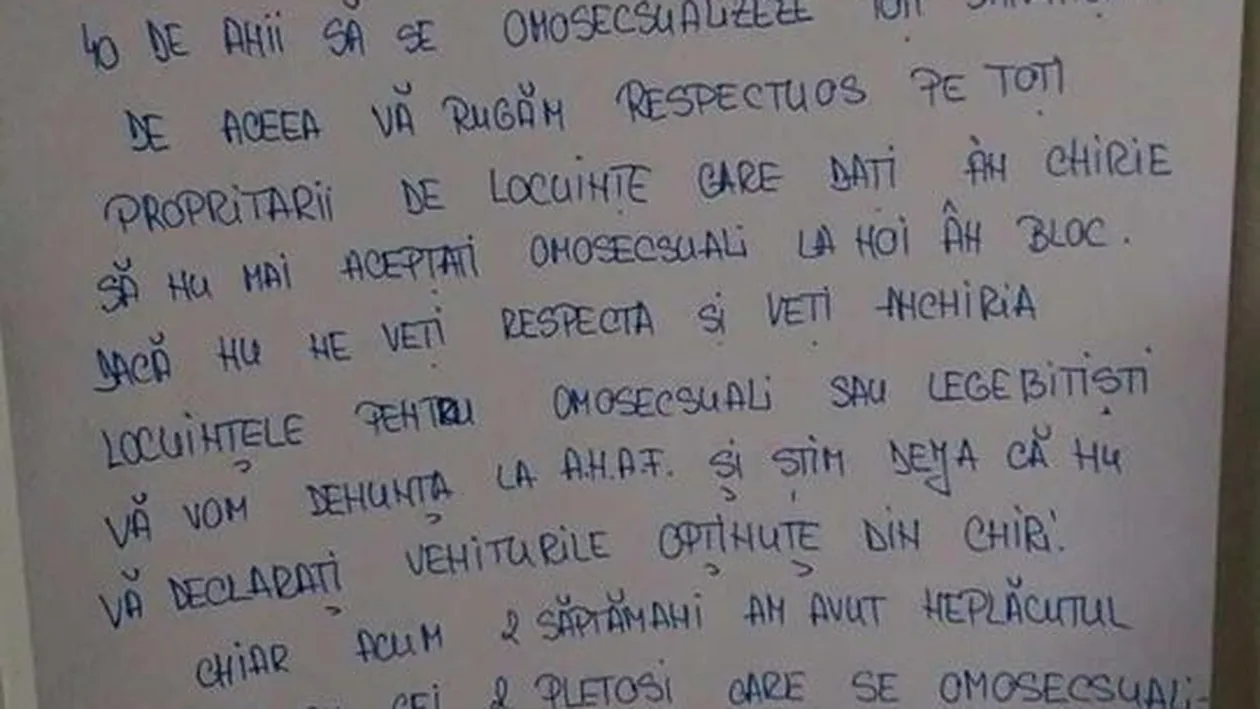 40 DE ANII SĂ SE OMOSECSUALIZEZE
DE ACEEA VĂ RUGĂM RESPECTUOS PE TOȚI
PROPRITARII DE LOCUINȚE CARE DAȚI ÂN CHIRIE
SĂ NU MAI ACEPTAȚI OMOSECSUALI LA NOI ÂN BLOC.
DACĂ NU NE VEȚI RESPECTA ȘI VEȚI ANCHIRIA
LOCUINȚELE PENTRU OMOSECSUALI SAU LEGEBITIȘTI
VĂ VOM DENUNȚA LA A.N.A.F. ȘI ȘTIM DEJA CĂ NU
VĂ DECLARAȚI VENITURILE OPȚINUȚE DIN CHIRI.
CHIAR ACUM 2 SĂPTĂMANI AM AVUT NEPLĂCUTUL
CEI 2 PLETOSI CARE SE OMOSECSUALI-